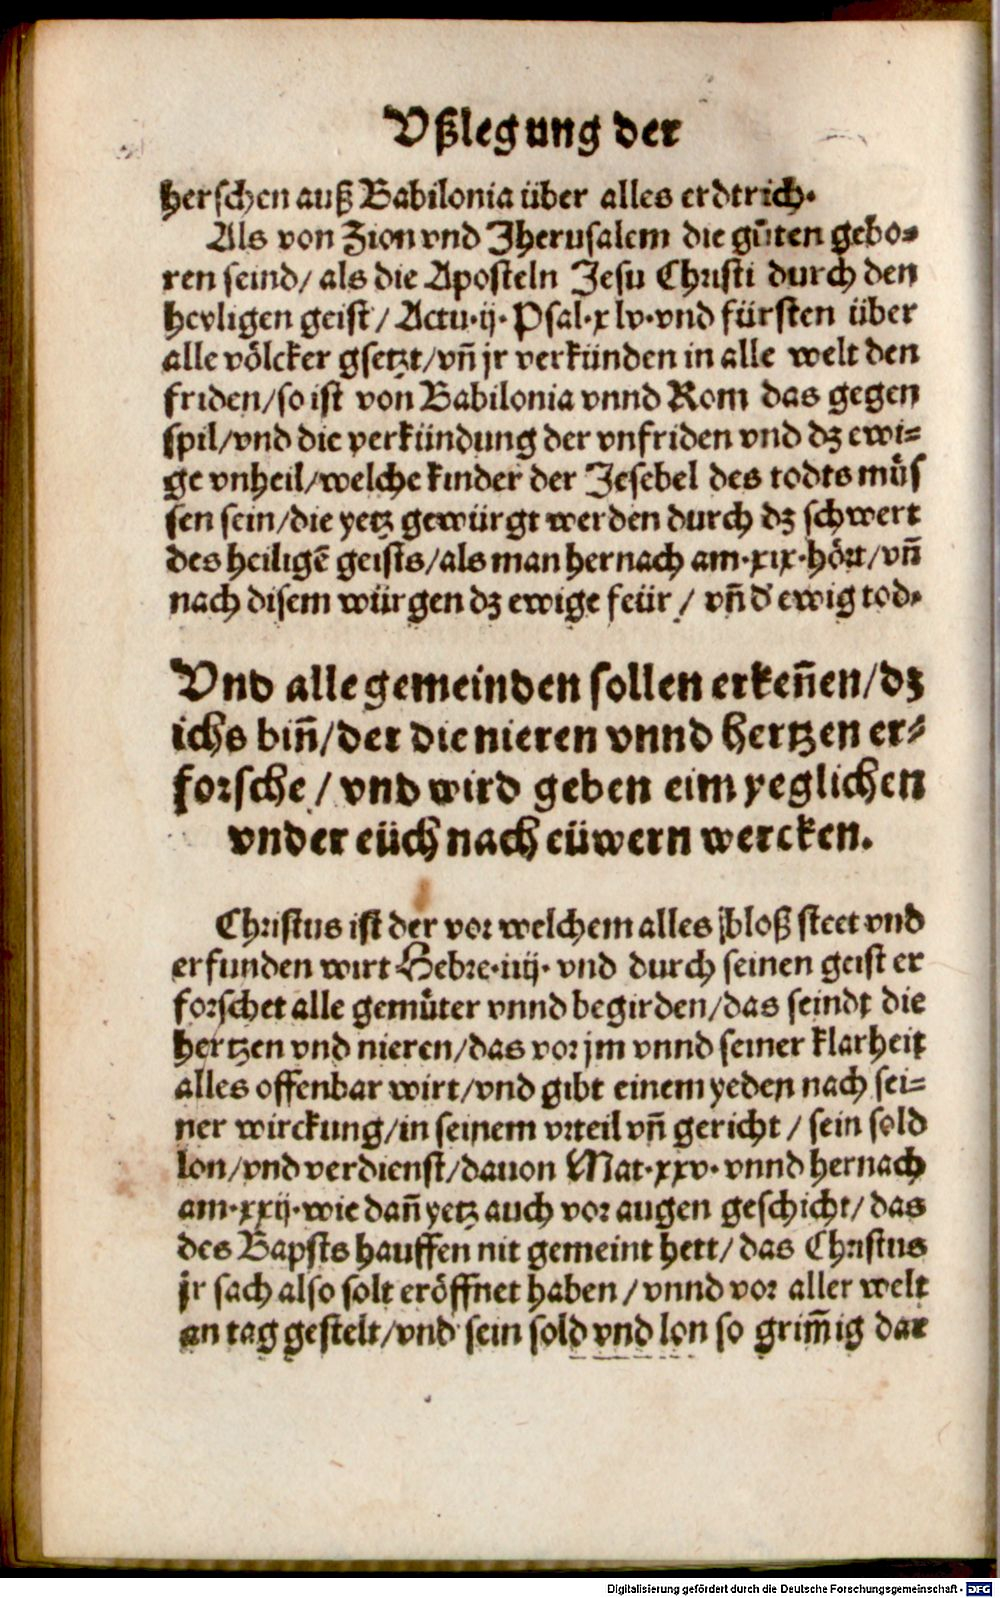 Vßlegung der
herschen auß Babilonia über alles erdtrich.
Als von Zion vnd Jherusalem die gůten gebo-
ren seind/ als die Aposteln Jesu Christi durch den
heyligen geist/ Actu.ij. Psal.xlv. vnd fürsten über
alle völcker gsetzt/vñ jr verkünden in alle welt den
friden/so ist von Babilonia vnnd Rom das gegen
spil/vnd die verkündung der vnfriden vnd dz ewi-
ge vnheil/welche kinder der Jesebel des todts müs
sen sein/die yetz gewürgt werden durch dz schwert
des heiligē geists/als man hernach am.xix.hört/vñ
nach disem würgen dz ewige feür/ vñ d' ewig tod.
Vnd alle gemeinden sollen erkeñen/dz
ichs biñ/der die nieren vnnd hertzen er-
forsche/ vnd wird geben eim yeglichen
vnder eüch nach eüwern wercken.
Christus ist der vor welchem alles bloß steet vnd
erfunden wirt Hebre.iiij. vnd durch seinen geist er
forschet alle gemůter vnnd begirden/das seindt die
hertzen vnd nieren/das vor jm vnnd seiner klarheit
alles offenbar wirt/vnd gibt einem yeden nach sei-
ner wirckung/in seinem vrteil vñ gericht/ sein sold
lon/vnd verdienst/dauon Mat.xxv. vnnd hernach
am.xxij.wie dañ yetz auch vor augen geschicht/ das
des Bapsts hauffen nit gemeint hett/ das Christus
jr sach also solt eröffnet haben/ vnnd vor aller welt
an tag gestelt/vnd sein sold vnd lon so grim̄ig dar
Digitalisierung gefördert durch die Deutsche Forschungsgemeinschaft - DFG